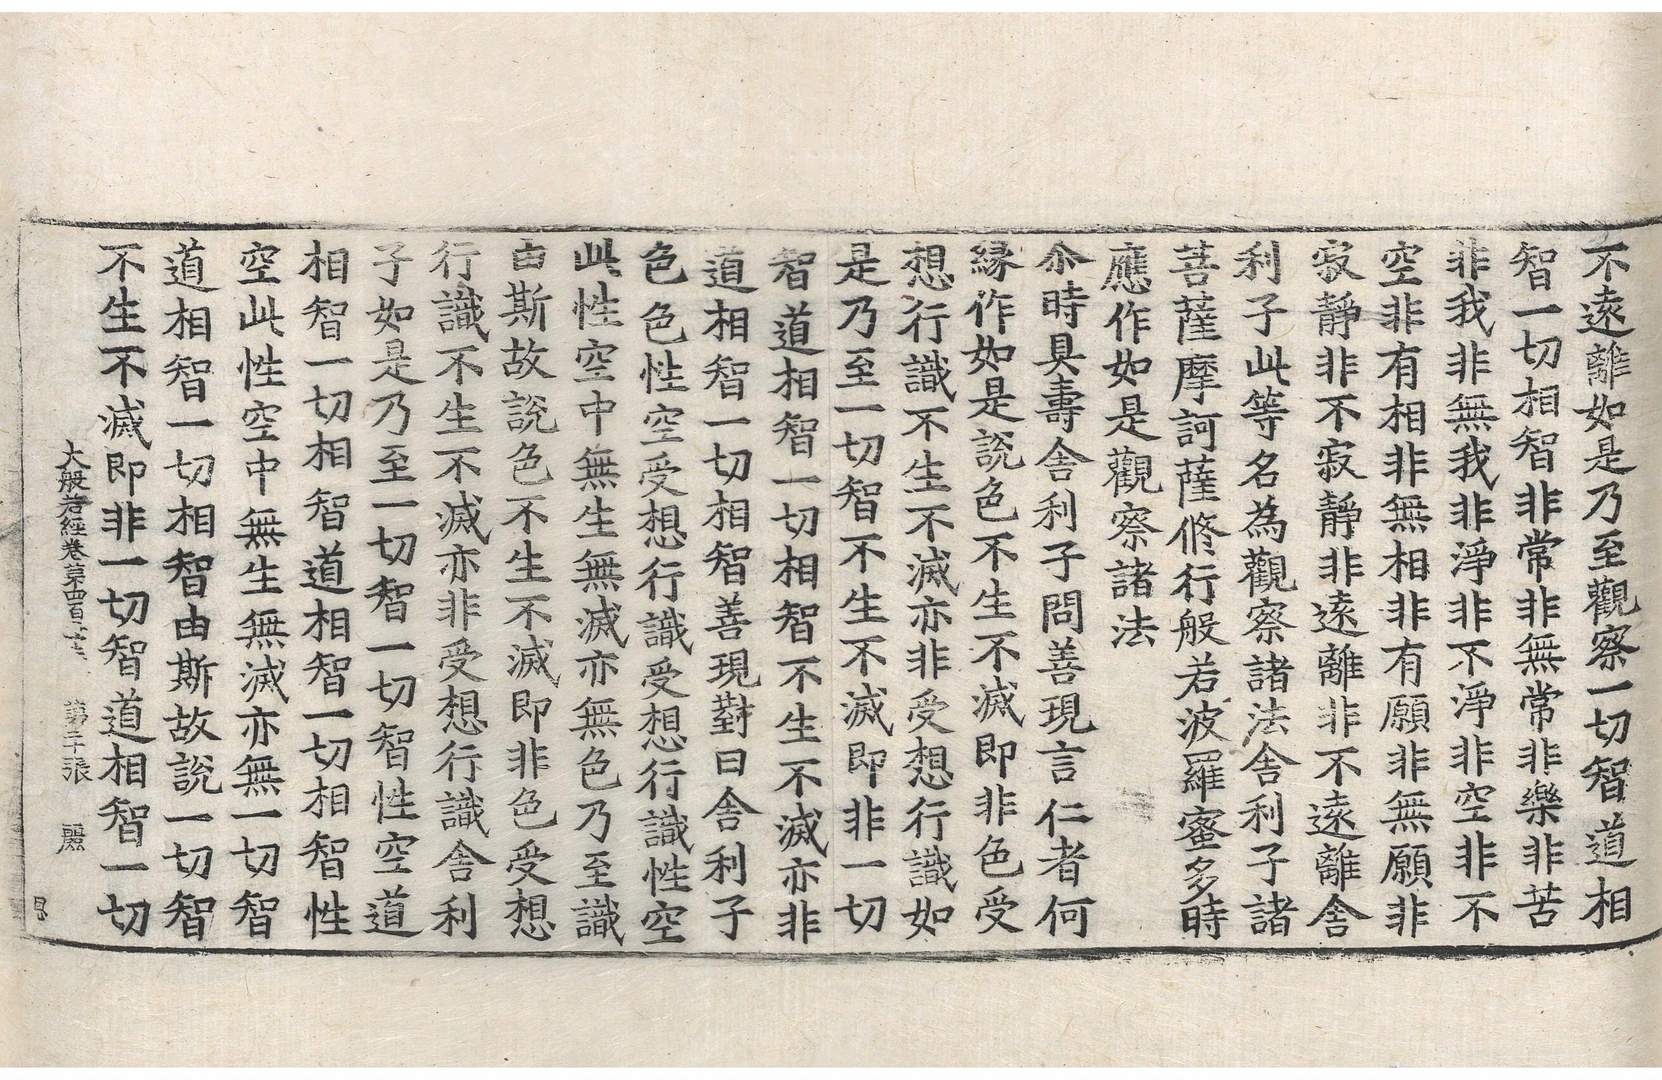 不遠離如是乃至觀察一切智道相
智一切相智非常非無常非樂非苦
非我非無我非淨非不淨非空非不
空非有相非無相非有願非無願非
寂靜非不寂靜非遠離非不遠離舍
利子此等名為觀察諸法舍利子諸
菩薩摩訶薩修行般若波羅蜜多時
應作如是觀察諸法
尒時具壽舍利子問善現言仁者何
緣作如是說色不生不滅即非色受
想行識不生不滅亦非受想行識如
是乃至一切智不生不滅即非一切
智道相智一切相智不生不滅亦非
道相智一切相智善現對曰舍利子
色色性空受想行識受想行識性空
此性空中無生無滅亦無色乃至識
由斯故說色不生不滅即非色受想
行識不生不滅亦非受想行識舍利
子如是乃至一切智一切智性空道
相智一切相智道相智一切相智性
空此性空中無生無滅亦無一切智
道相智一切相智由斯故說一切智
不生不滅即非一切智道相智一切
大般若經卷第四百 第 張 麗